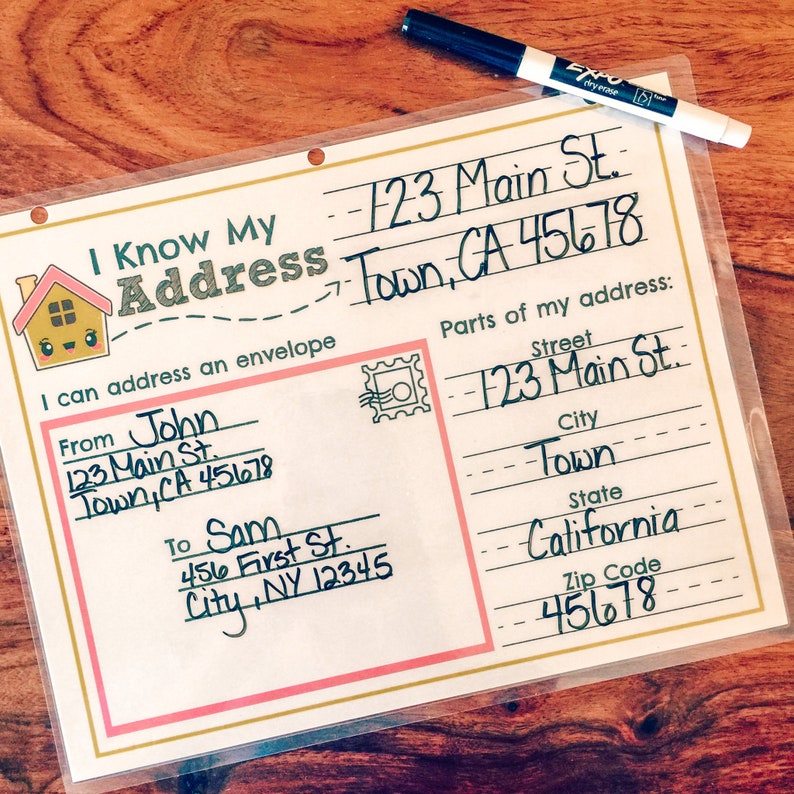 EXPO
dry erase
fine
I Know My
Address
123 Main St.
Town, CA 45678
I can address an envelope
From John
123 Main St.
Town, CA 45678
To Sam
456 First St.
City, NY 12345
Parts of my address:
Street
123 Main St.
City
Town
State
California
Zip Code
45678